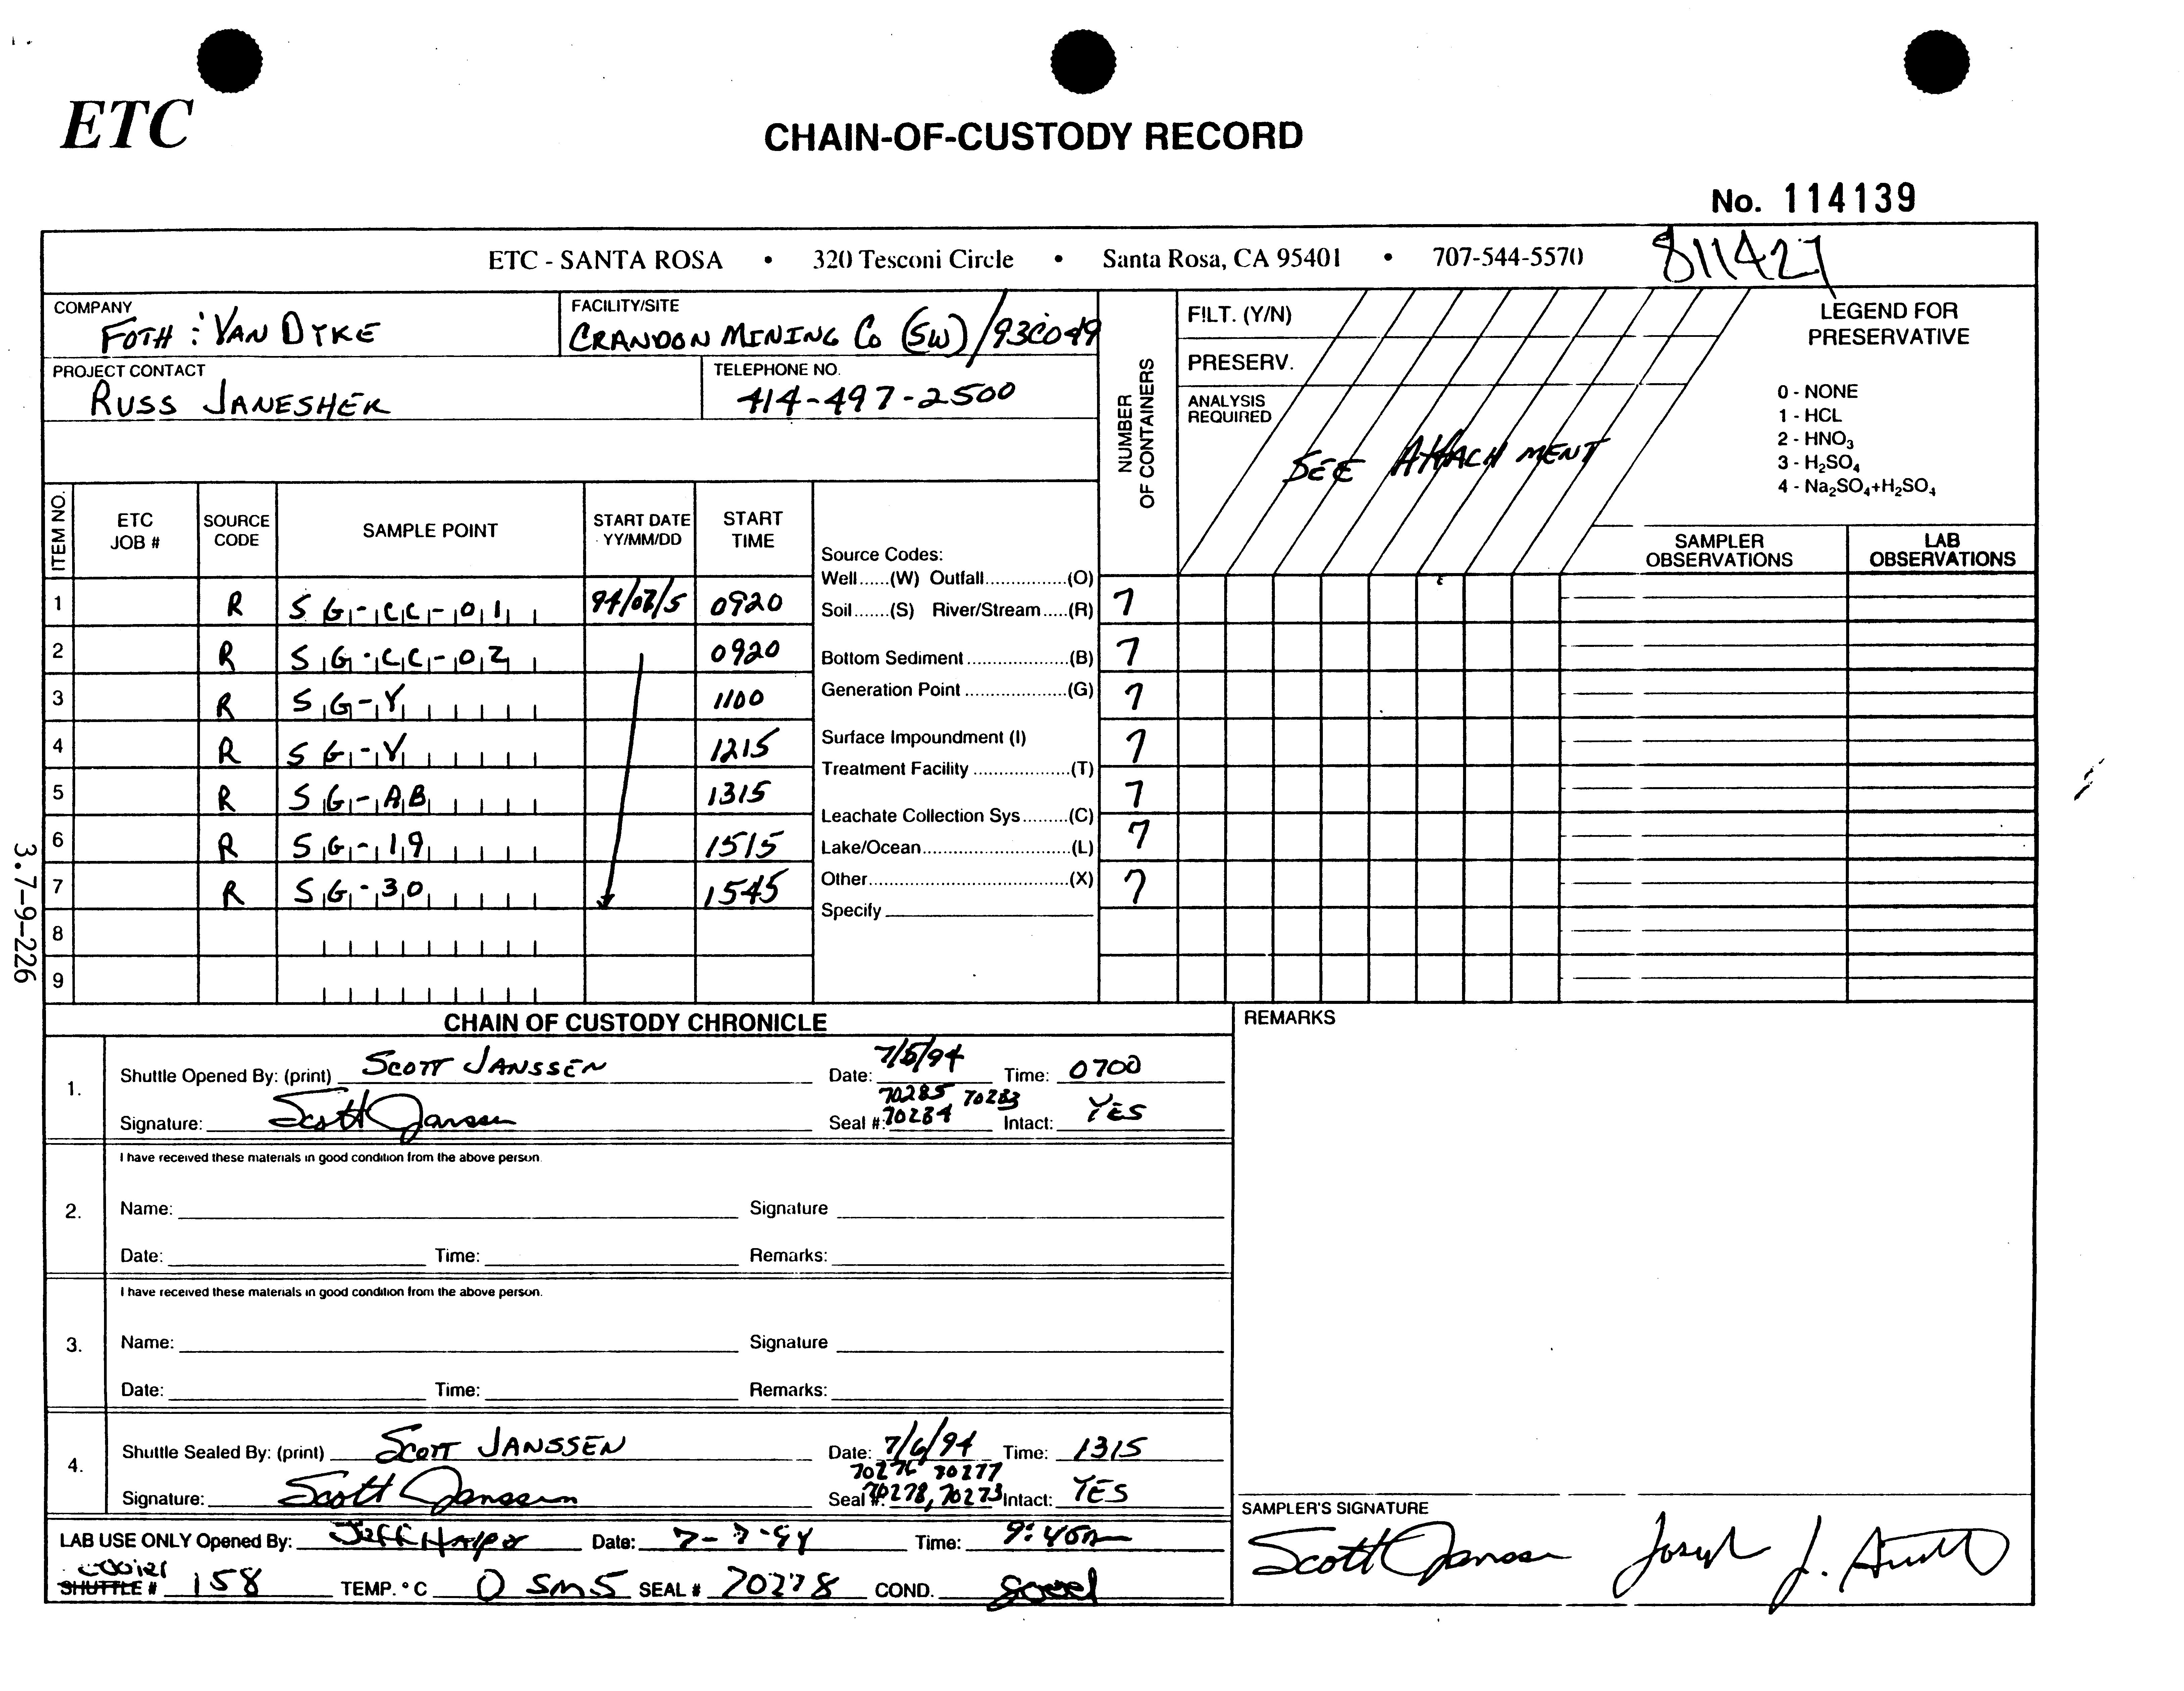 ETC
CHAIN-OF-CUSTODY RECORD
No. 114139
ETC - SANTA ROSA • 320 Tesconi Circle • Santa Rosa, CA 95401 • 707-544-5570 811427
COMPANY
FOTH : VAN DYKE
FACILITY/SITE
CRANDON MINING Co (SW) /93C049
PROJECT CONTACT
RUSS JANESHEK
TELEPHONE NO.
414-497-2500
NUMBER OF CONTAINERS
FILT. (Y/N)
PRESERV.
ANALYSIS REQUIRED
SEE ATTACHMENT
LEGEND FOR PRESERVATIVE
0 - NONE
1 - HCL
2 - HNO3
3 - H2SO4
4 - Na2SO4+H2SO4
ITEM NO. ETC JOB # SOURCE CODE SAMPLE POINT START DATE YY/MM/DD START TIME
SAMPLER OBSERVATIONS LAB OBSERVATIONS
1 R SG-CC-01 94/07/5 0920 7
2 R SG-CC-02 0920 7
3 R SG-Y 1100 7
4 R SG-V 1215 7
5 R SG-AB 1315 7
6 R SG-19 1515 7
7 R SG-30 1545 7
8
9
Source Codes:
Well......(W) Outfall...............(O)
Soil.......(S) River/Stream.....(R)
Bottom Sediment...................(B)
Generation Point ...................(G)
Surface Impoundment (I)
Treatment Facility ...................(T)
Leachate Collection Sys.........(C)
Lake/Ocean............................(L)
Other......................................(X)
Specify
3.7-9-226
CHAIN OF CUSTODY CHRONICLE
REMARKS
1.
Shuttle Opened By: (print) SCOTT JANSSEN Date: 7/5/94 Time: 0700
70285 70283
Signature: Scott Janssen Seal #: 70284 Intact: YES
I have received these materials in good condition from the above person.
2.
Name: Signature
Date: Time: Remarks:
I have received these materials in good condition from the above person.
3.
Name: Signature
Date: Time: Remarks:
4.
Shuttle Sealed By: (print) SCOTT JANSSEN Date: 7/6/94 Time: 1315
70276 70277
Signature: Scott Janssen Seal #: 70278, 70273 Intact: YES
SAMPLER'S SIGNATURE
Scott Janssen Joseph J.
LAB USE ONLY Opened By: Jeff Date: 7-7-94 Time: 9:40
cooler
SHUTTLE # 158 TEMP. °C 0 SMS SEAL # 70278 COND. good